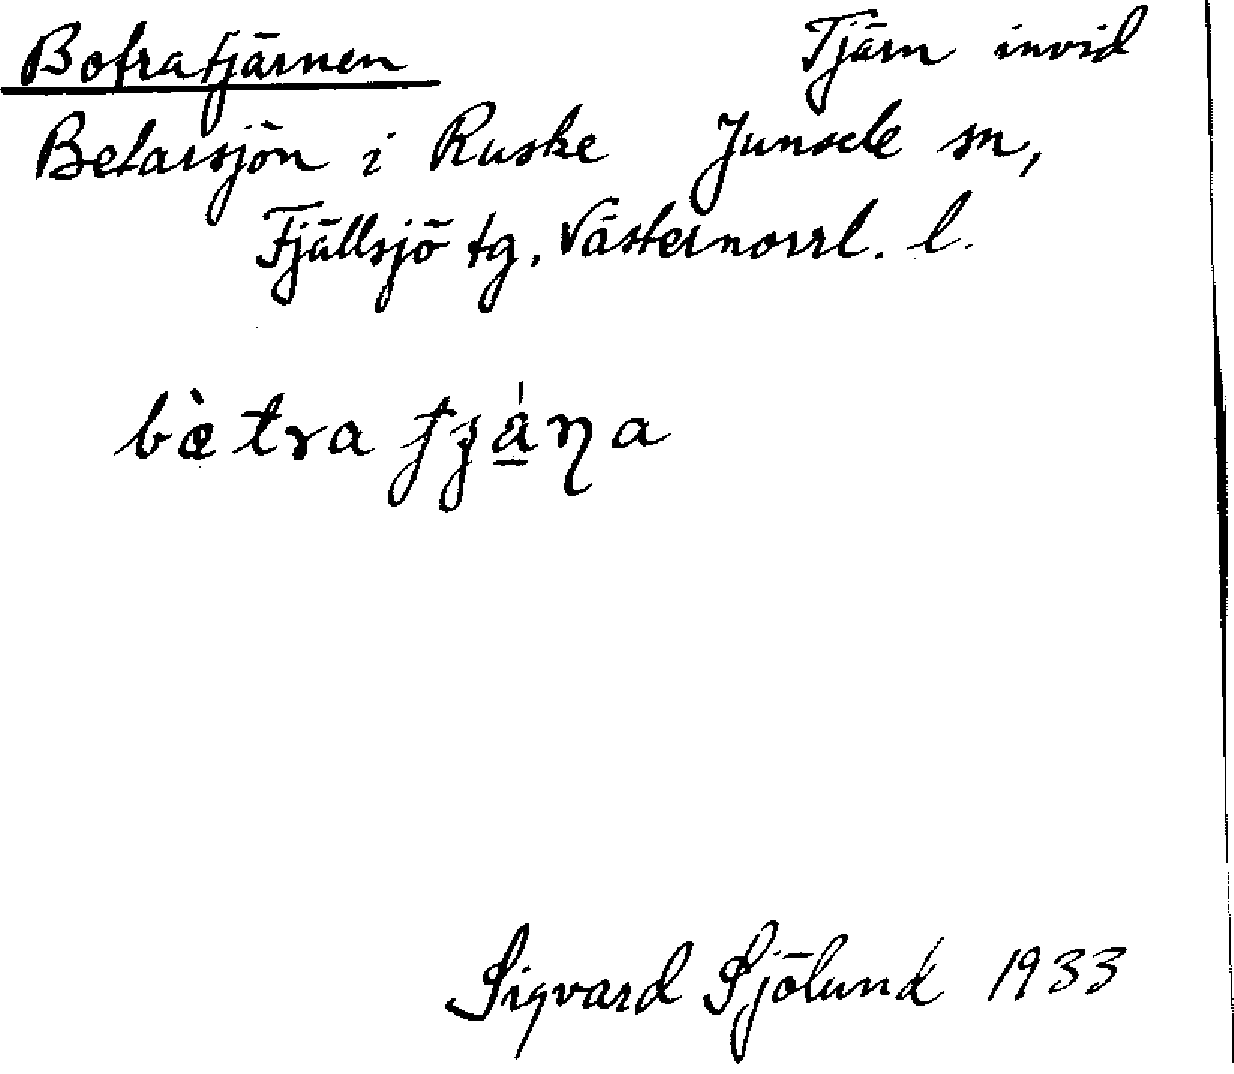 Botratjärnen Tjärn invid
Betarsjön i Ruske Junsele sn,
Fjällsjö tg. Västernorrl. l.
Sigvard Sjölund 1933